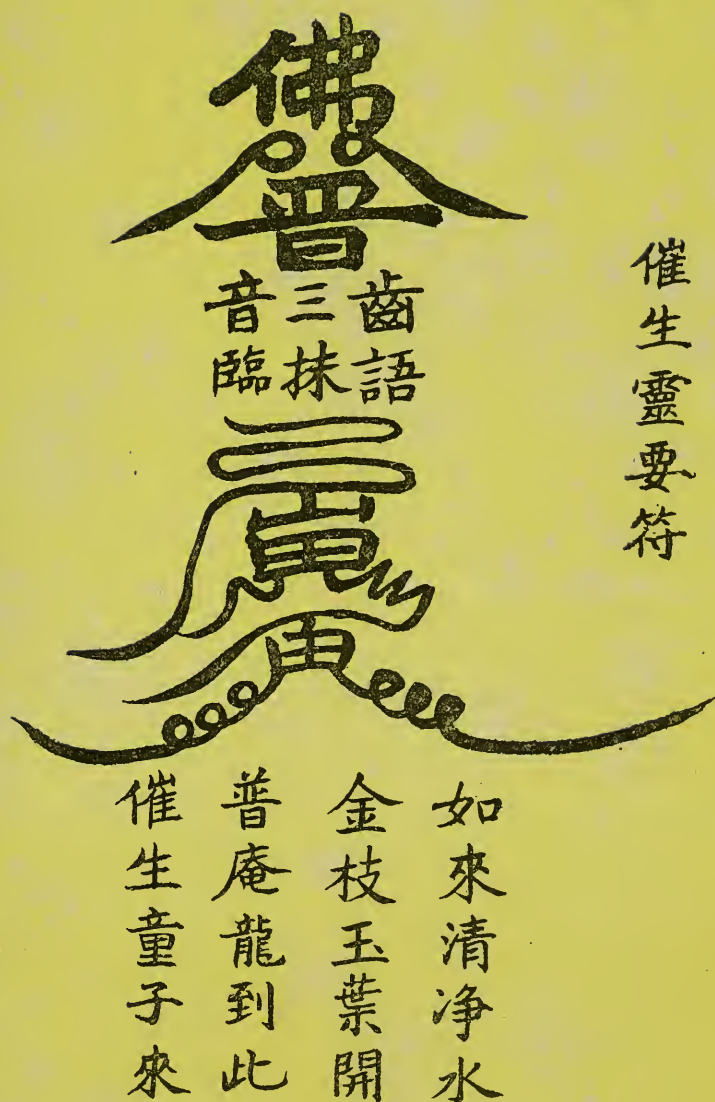 催生靈要符
佛
普
齒三音
語抹臨
如來清净水
金枝玉葉開
普庵龍到此
催生童子來